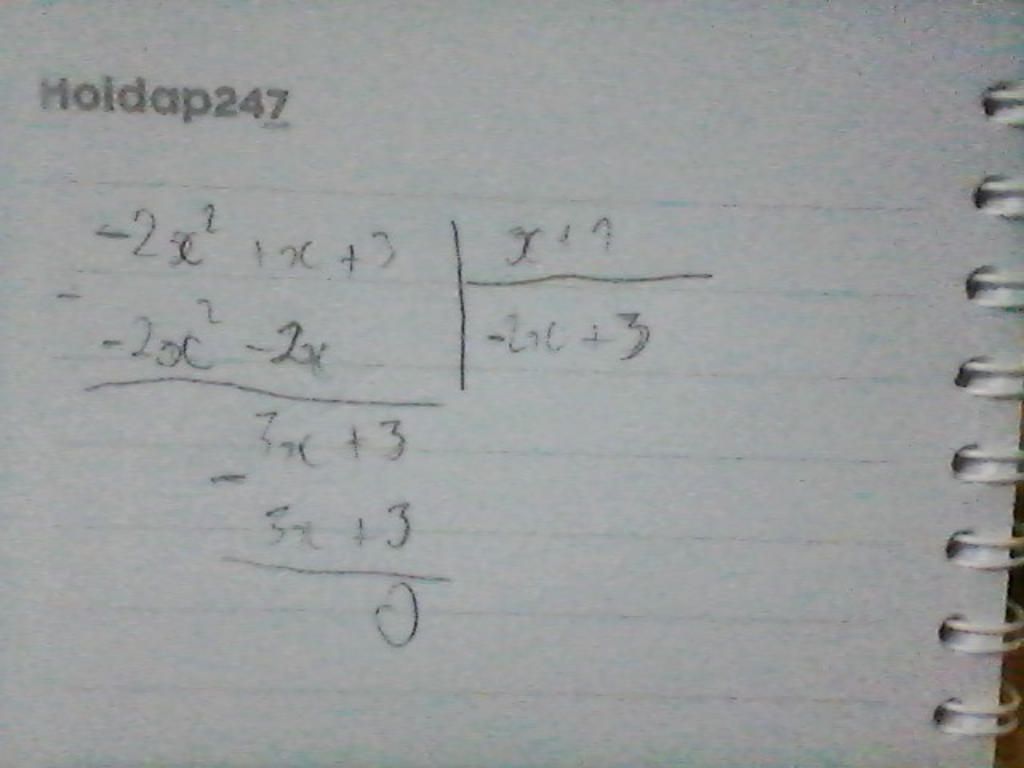 Hoidap247
-2x² +x +3 | x+1
-
-2x² -2x | -2x+3
3x +3
-
3x +3
0